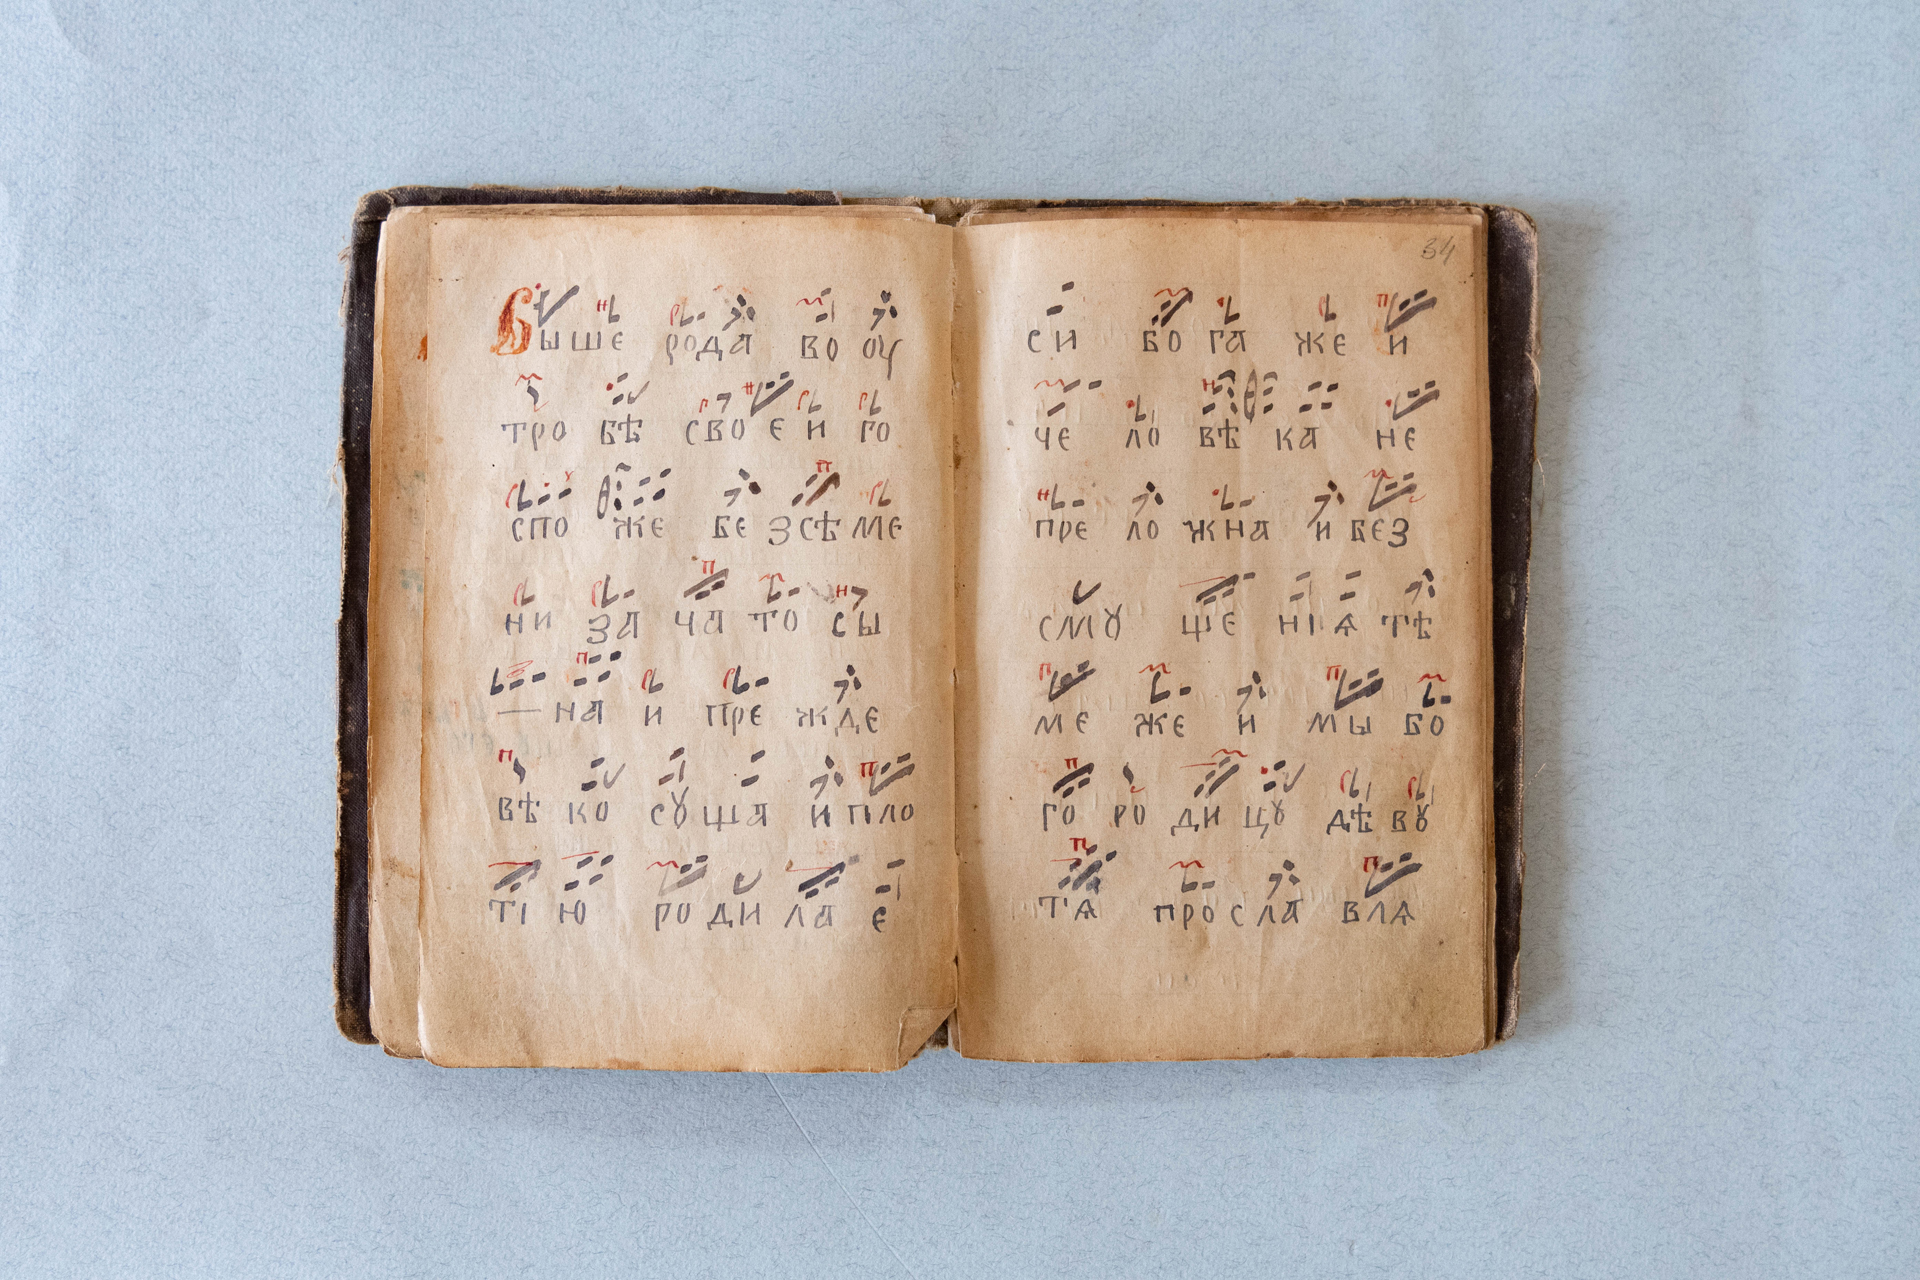 Выше рода во оу
тро бѣ сво є и го
спо же бе зсѣ ме
ни за ча то сы
— на и пре жде
вѣ ко сꙋ ща и пло
ті ю ро ди ла є
34
си бо га же и
че ло вѣ ка не
пре ло жна и без
смꙋ ще ні ѧ тѣ
ме же и мы бо
го ро ди цꙋ дѣ вꙋ
тѧ про сла влѧ